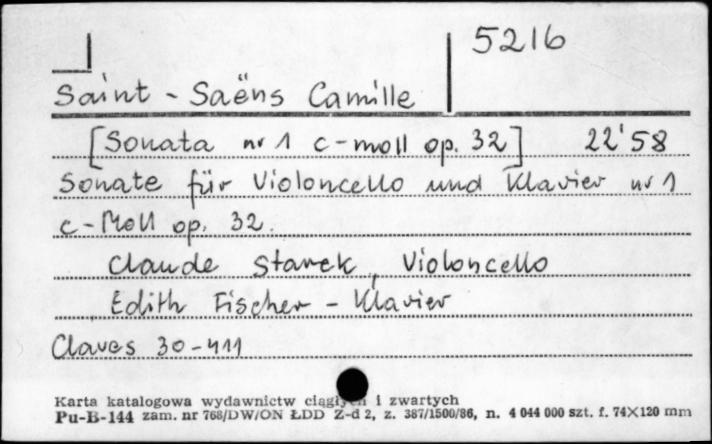 5216
Saint-Saëns Camille
[Sonata nr 1 c-moll op. 32] 22'58
Sonate für Violoncello und Klavier nr 1
c-Moll op. 32.
Claude Starck, Violoncello
Edith Fischer - Klavier
Claves 30-411
Karta katalogowa wydawnictw ciągłych i zwartych
Pu-B-144 zam. nr 768/DW/ON ŁDD Z-d 2, z. 387/1500/86, n. 4 044 000 szt. f. 74X120 mm